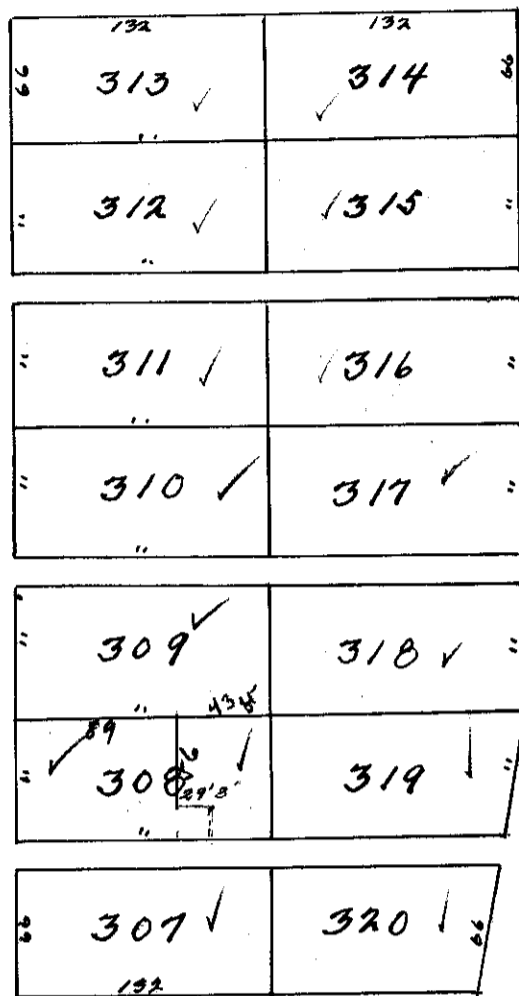 132 132
66 313 ✓ 314 ✓ 66
"
" 312 ✓ ✓ 315 "
"
" 311 ✓ ✓ 316 "
"
" 310 ✓ 317 ✓ "
"
" 309 ✓ 318 ✓ "
"
89
" ✓ 308 ✓ 319 ✓ "
29'8"
"
66 307 ✓ 320 ✓ 66
132